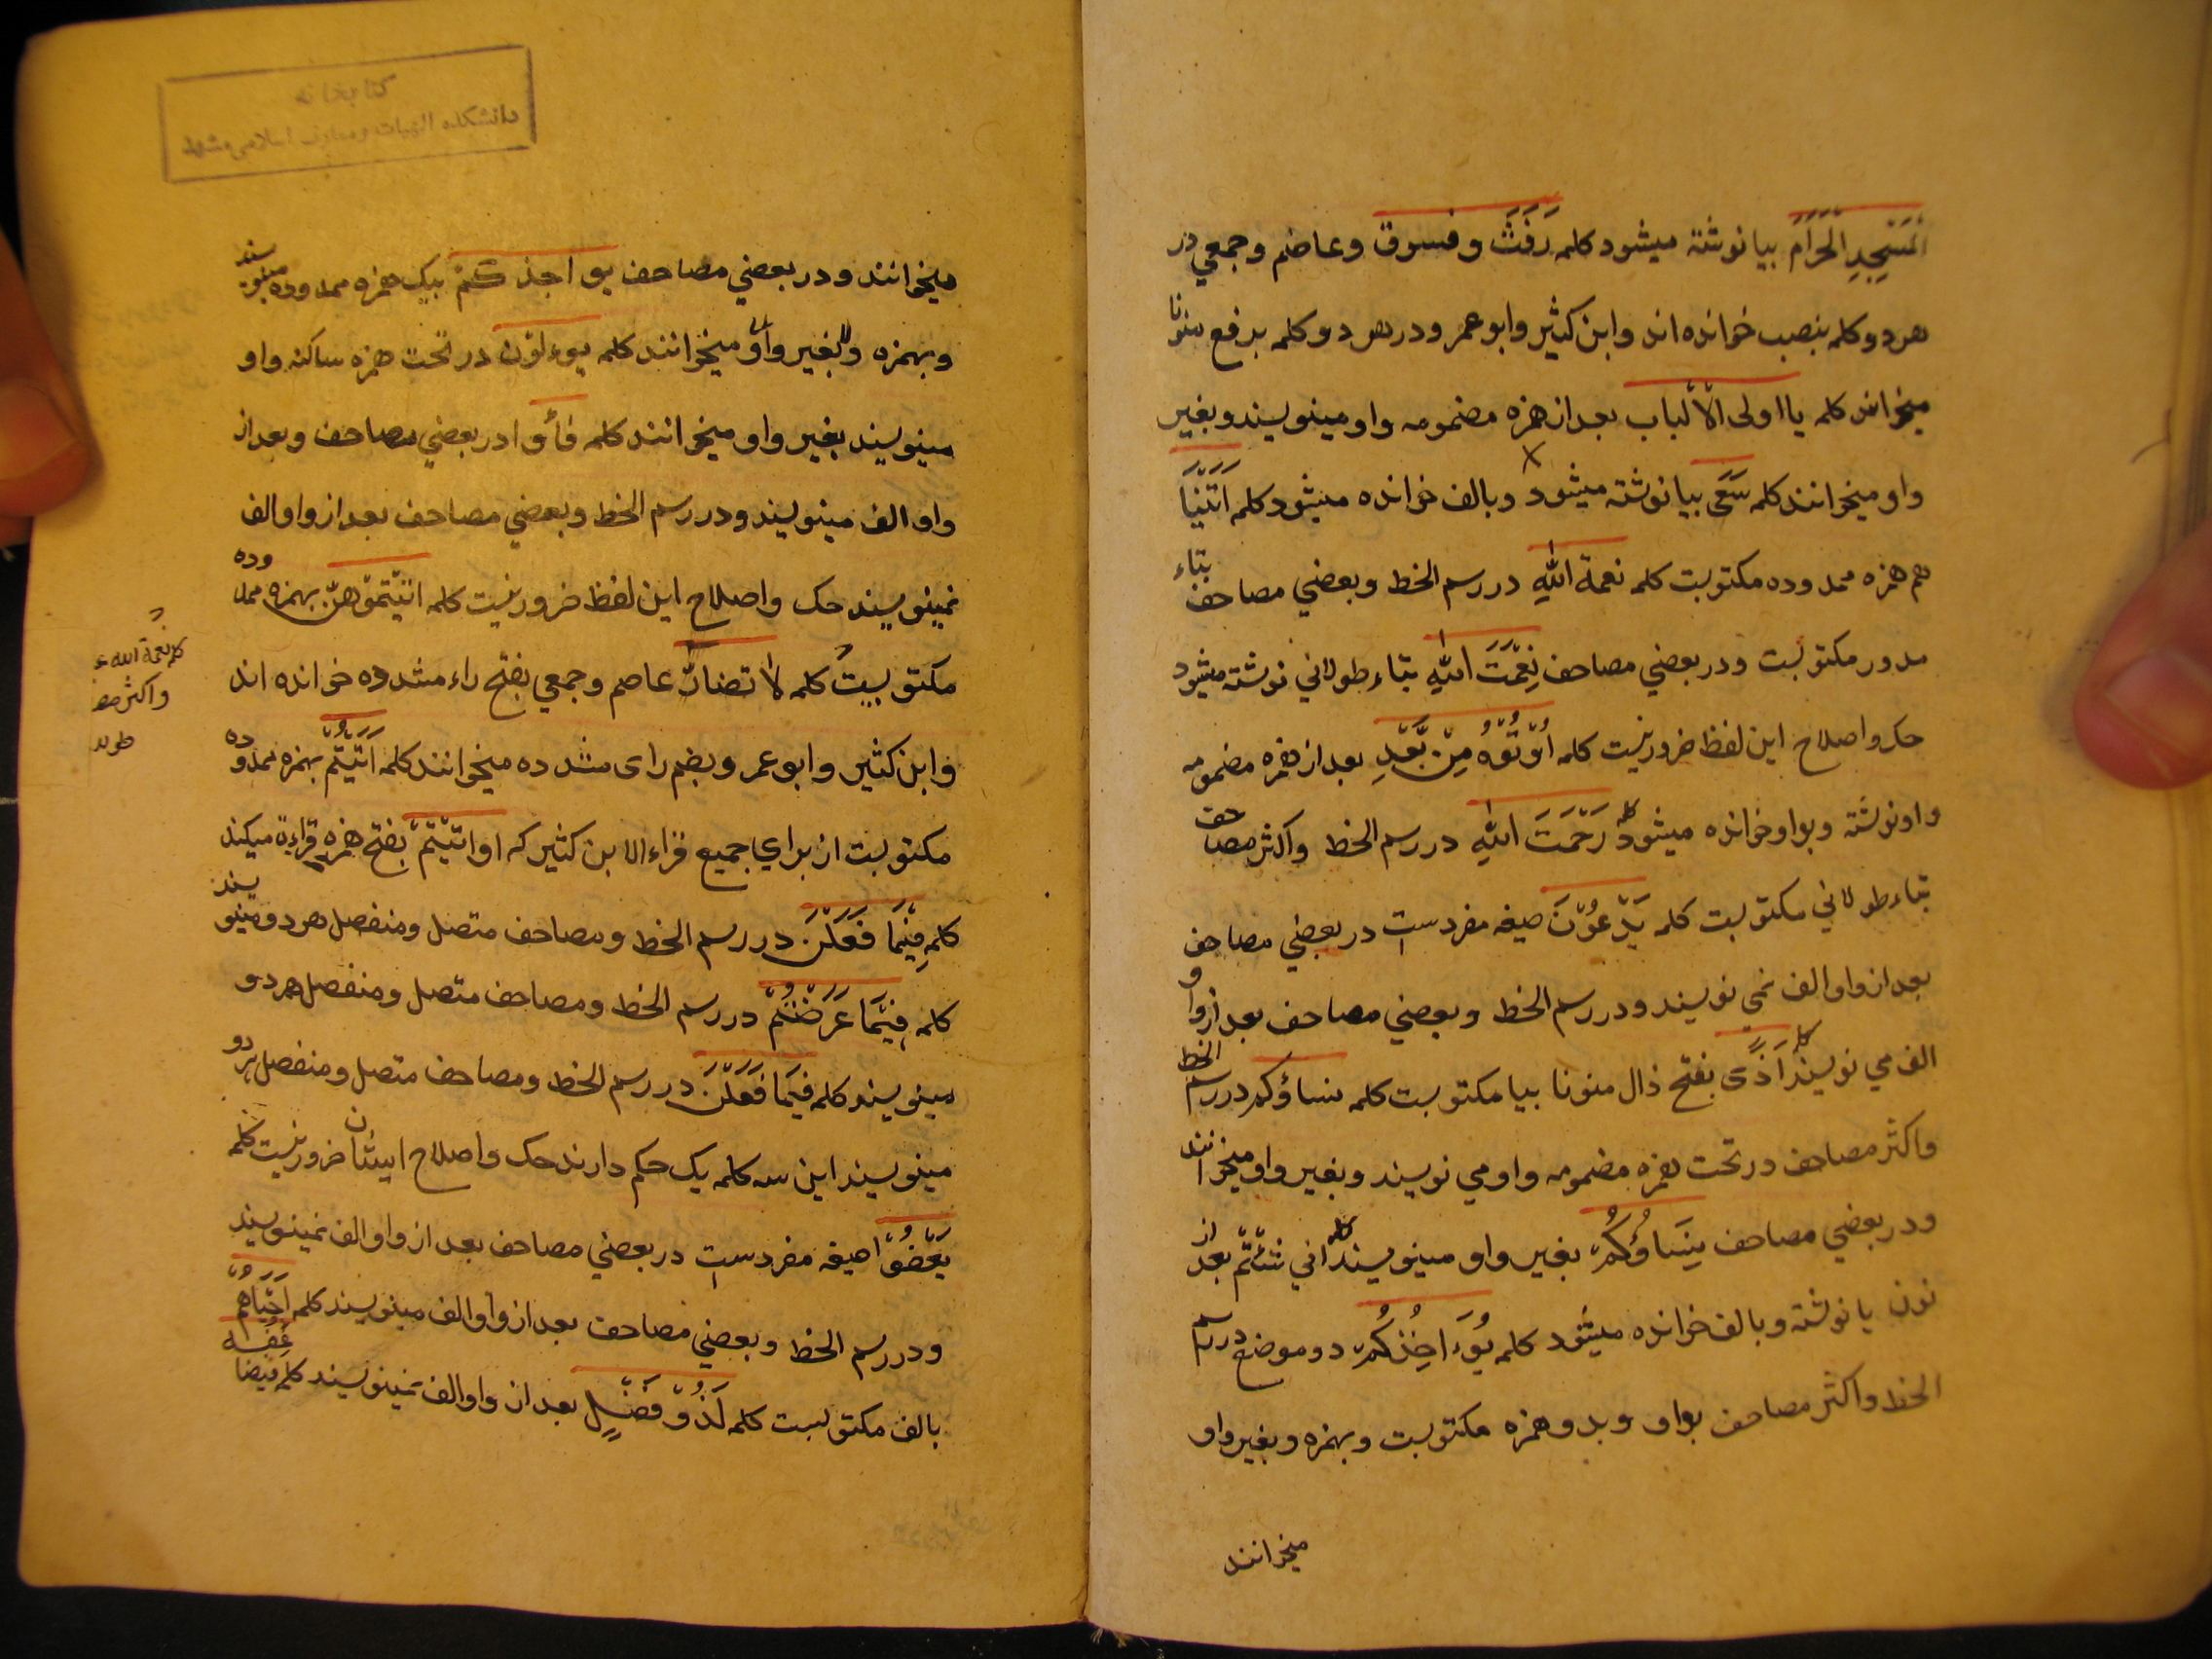 الْمَسْجِدِ الْحَرَامِ بیا نوشتة میشود کلمه رَفَثَ و فسوق و عاصم و جمعي در
هر دو کلمه بنصب خوانده اند وابن کثیر وابو عمر و در هر دو کلمه برفع منونا
میخوانند کلمه یا اولی الْاَلْباب بعد از همزه مضمومه واو مینویسند و بغیر
واو میخوانند کلمه سَعَی بیا نوشتة میشود وبالف خوانده میشود کلمه اٰتَیْنَا
هم همزه ممدوده مکتوبست کلمه نعمة اللّٰهِ در رسم الخط و بعضي مصاحف بتاء
مدور مکتوبست و در بعضي مصاحف نِعْمَتَ اللّٰهِ بتاء طولاني نوشته میشود
حک و اصلاح این لفظ ضرور نیست کلمه اُوْتُوْهُ مِنْ بَعْدِ بعد از همزه مضمومه
واو نوشته و بواو خوانده میشود کلمه رَحْمَتَ اللّٰهِ در رسم الخط واکثر مصاحف
بتاء طولاني مکتوبست کلمه یَدْعُوْنَ صیغه مفردست در بعضي مصاحف
بعد از واو الف نمي نویسند و در رسم الخط و بعضي مصاحف بعد از واو
الف مي نویسند کلمه اَذًی بفتح ذال منونا بیا مکتوبست کلمه نساؤکم در رسم الخط
واکثر مصاحف در تحت همزه مضمومه واو مي نویسند و بغیر واو میخوانند
و در بعضي مصاحف نِسَاؤُکُمْ بغیر واو مینویسند کلمه اني شئتم بعد از
نون یا نوشته و بالف خوانده میشود کلمه یُوَء اخِذُکُمْ دو موضع در رسم
الخط واکثر مصاحف بواو و بدو همزه مکتوبست و بهمزه و بغیر واو
میخوانند
کتابخانه
دانشکده الهیات و معارف اسلامی مشهد
میخوانند و در بعضي مصاحف یو اخذکم بیک همزه ممدوده مینویسند
و بهمزه و بغیر واو میخوانند کلمه یوءلون در تحت همزه ساکنه واو
مینویسند بغیر واو میخوانند کلمه فاؤا در بعضي مصاحف و بعد از
واو الف مینویسند و در رسم الخط و بعضي مصاحف بعد از واو الف
نمینویسند حک واصلاح این لفظ ضرور نیست کلمه اتیتموهن بهمزه ممدوده
مکتوبست کلمه لا تضارّ عاصم و جمعي بفتح راء مشدده خوانده اند
وابن کثیر وابو عمر و بضم رای مشدده میخوانند کلمه اٰتَیْتُمْ بهمزه ممدوده
مکتوبست از برای جمیع قراء الا ابن کثیر که او اتیتم بفتح همزه قراءة میکند
کلمه فِیْمَا فَعَلْنَ در رسم الخط و مصاحف متصل و منفصل هر دو مینویسند
کلمه فِیْمَا عَرَّضْتُمْ در رسم الخط و مصاحف متصل و منفصل هر دو
مینویسند کلمه فیمَا فَعَلْنَ در رسم الخط و مصاحف متصل و منفصل هر دو
مینویسند این سه کلمه یک حکم دارند حک و اصلاح اینان ضرور نیست کلمه
یَعْفُوْا صیغه مفردست در بعضي مصاحف بعد از واو الف نمینویسند
و در رسم الخط و بعضي مصاحف بعد از واو الف مینویسند کلمه اَحْیَاهُمْ
بالف مکتوبست کلمه لَذُوْ فَضْلٍ بعد از واو الف نمینویسند کلمه فیضاعفه
کلمه نعمة الله
واکثر مصا